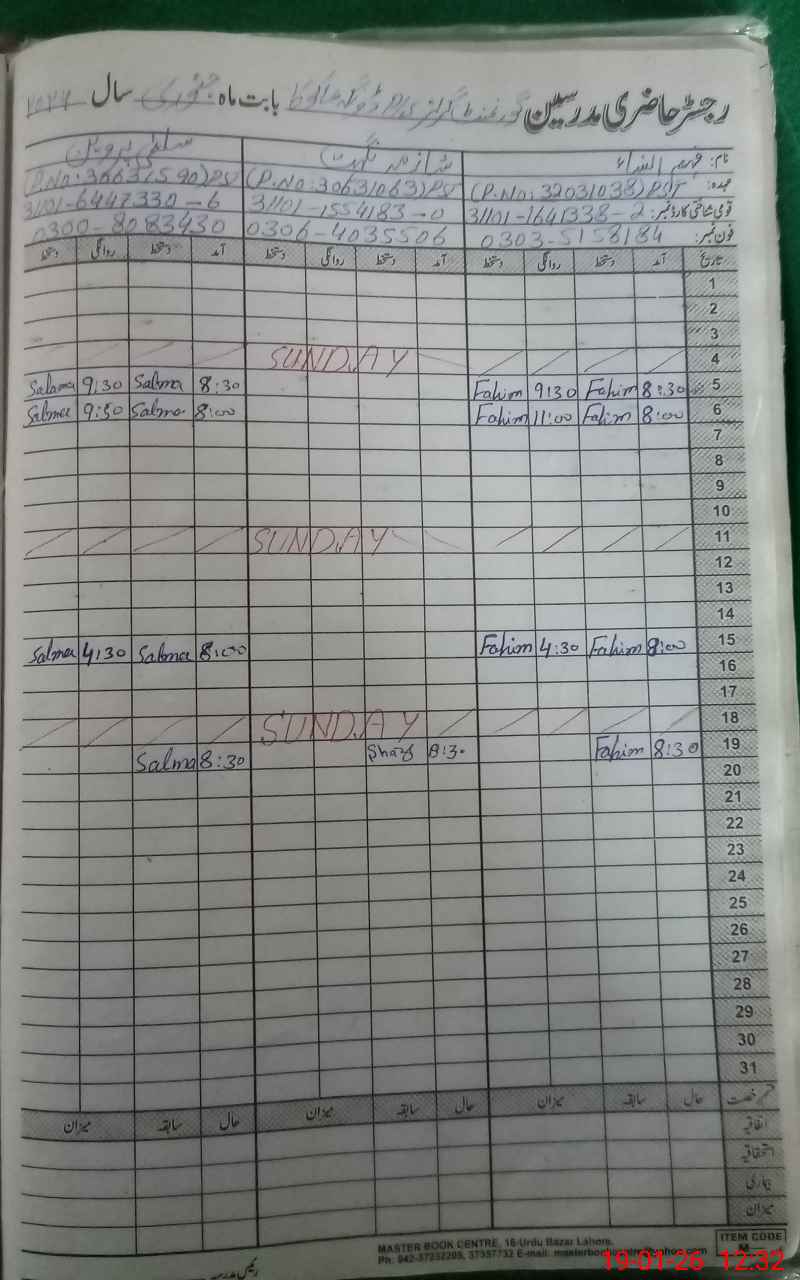 رجسٹر حاضری مدرسین گورنمنٹ گرلز بابت ماہ جنوری سال ۲۰۲۶
نام: فہیم النساء شازیہ نگہت سلمیٰ پروین
عہدہ: (P.No: 32031038) PST (P.No: 30631063) PST (P.No: 30631590) PST
قومی شناختی کارڈ نمبر: 31101-1641338-2 31101-1554183-0 31101-6447330-6
فون نمبر: 0303-5158184 0306-4035506 0300-8083430
تاریخ آمد دستخط روانگی دستخط آمد دستخط روانگی دستخط آمد دستخط روانگی دستخط
1
2
3
SUNDAY 4
Salma 9:30 Salma 8:30 Fahim 9:30 Fahim 8:30 5
Salma 9:50 Salma 8:00 Fahim 11:00 Fahim 8:00 6
7
8
9
10
SUNDAY 11
12
13
14
Salma 4:30 Salma 8:00 Fahim 4:30 Fahim 8:00 15
16
17
SUNDAY 18
Salma 8:30 Shaz 8:30 Fahim 8:30 19
20
21
22
23
24
25
26
27
28
29
30
31
قسم رخصت حال سابقہ میزان حال سابقہ میزان حال سابقہ میزان
اتفاقیہ
استحقاقیہ
بیماری
میزان
ITEM CODE
M
MASTER BOOK CENTRE, 16-Urdu Bazar Lahore.
Ph: 042-37232205, 37357732 E-mail:
19-01-26 12:32